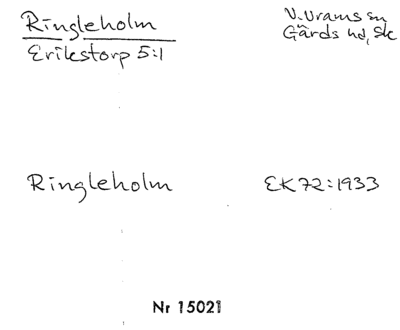 Ringleholm
Erikstorp 5:1
V. Vrams sn
Gärds hd, Sk
Ringleholm
EK 72:1933
Nr 15021